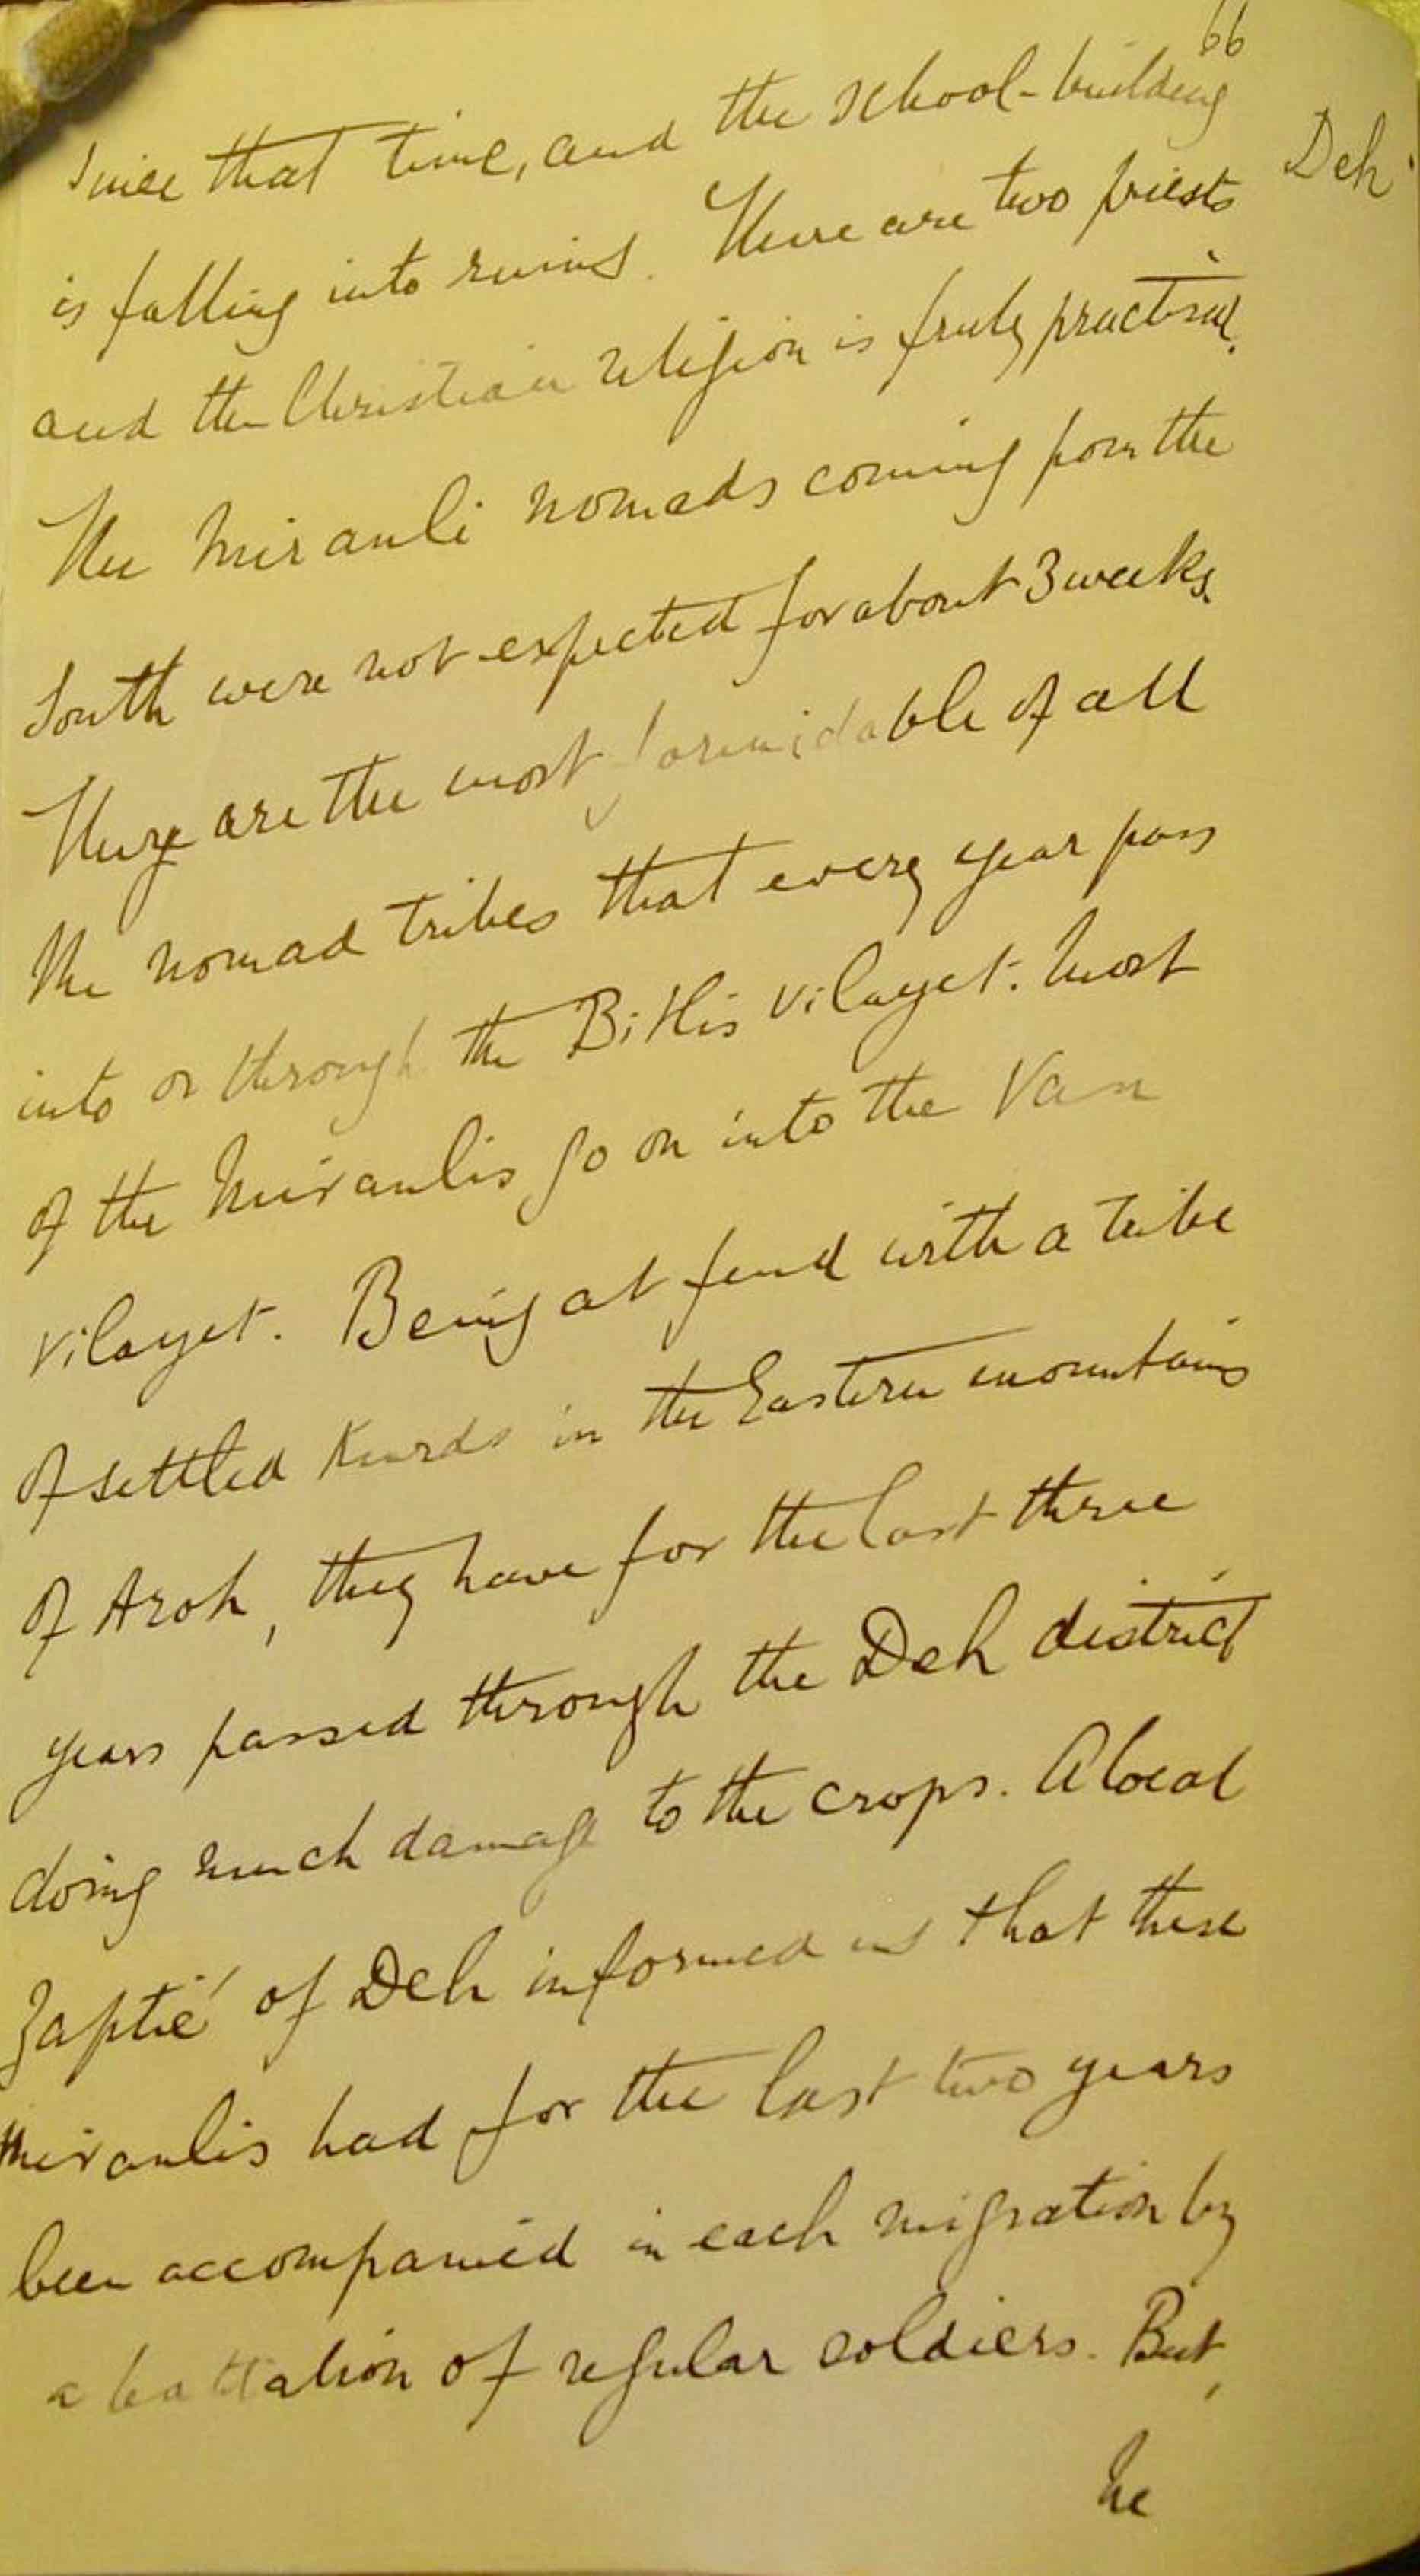 66
Deh
Since that time, and the school-building
is falling into ruins. There are two priests
and the Christian religion is freely practised.
The Miranli nomads coming from the
South were not expected for about 3 weeks.
These are the most formidable of all
the nomad tribes that every year pass
into or through the Bitlis vilayet. Most
of the Miranlis go on into the Van
vilayet. Being at feud with a tribe
of settled Kurds in the Eastern mountains
of Aroh, they have for the last three
years passed through the Deh district
doing much damage to the crops. A local
Zaptié of Deh informed us that these
Miranlis had for the last two years
been accompanied in each migration by
a battalion of regular soldiers. But,
he